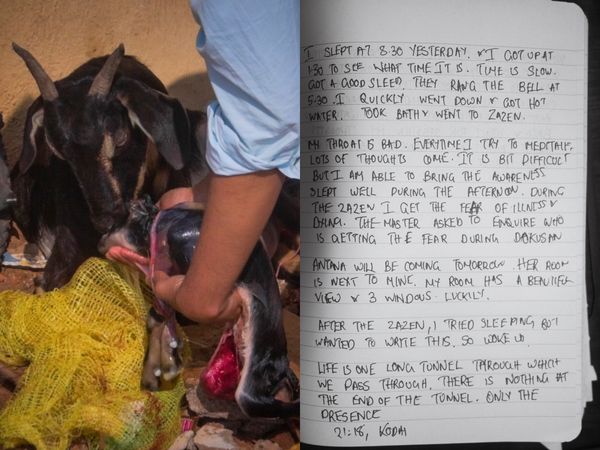 I SLEPT AT 8.30 YESTERDAY. & I GOT UP AT
1:30 TO SEE WHAT TIME IT IS. TIME IS SLOW.
GOT A GOOD SLEEP. THEY RANG THE BELL AT
5:30. I QUICKLY WENT DOWN & GOT HOT
WATER. TOOK BATH & WENT TO ZAZEN.
MY THROAT IS BAD. EVERYTIME I TRY TO MEDITATE,
LOTS OF THOUGHTS COME. IT IS BIT DIFFICULT
BUT I AM ABLE TO BRING THE AWARENESS
SLEPT WELL DURING THE AFTERNOON. DURING
THE ZAZEN I GET THE FEAR OF ILLNESS &
THE MASTER ASKED TO ENQUIRE WHO
IS GETTING THE FEAR DURING DOKUSAN
WILL BE COMING TOMORROW. HER ROOM
IS NEXT TO MINE. MY ROOM HAS A BEAUTIFUL
VIEW & 3 WINDOWS. LUCKILY.
AFTER THE ZAZEN, I TRIED SLEEPING BUT
WANTED TO WRITE THIS. SO WOKE UP.
LIFE IS ONE LONG TUNNEL THROUGH WHICH
WE PASS THROUGH. THERE IS NOTHING AT
THE END OF THE TUNNEL. ONLY THE
PRESENCE
21:18, KODAI